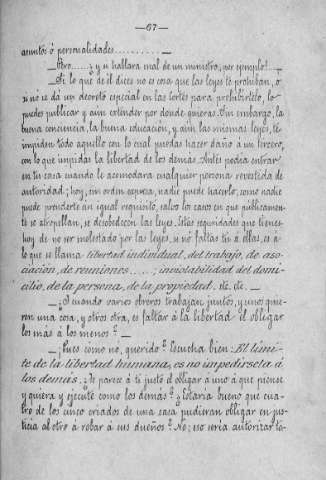 —67—
asuntos ó personalidades..........—
—Pero.....¿y si hablara mal de un ministro, por ejemplo?—
—Si lo que de él dices no es cosa que las leyes te prohiban, ó
si no se dá un decreto especial en las Cortes para prohibirtelo, lo
puedes publicar y aún extender por donde quieras. Sin embargo, la
buena conciencia, la buena educación, y aún las mismas leyes, te
impiden todo aquello con lo cual puedas hacer daño á un tercero,
con lo que impidas la libertad de los demás. Antes podia entrar
en tu casa cuando le acomodara cualquier persona revestida de
autoridad; hoy, sin orden expresa, nadie puede hacerlo; como nadie
puede prenderte sin igual requisito, salvo los casos en que públicamen-
te se atropellan, se desobedecen las leyes. Estas seguridades que tienes
hoy de no ser molestado por las leyes, si no faltas tú á ellas, es á
lo que se llama libertad individual, del trabajo, de aso-
ciación, de reuniones.....; inviolabilidad del domi-
cilio, de la persona, de la propiedad. &c. &c.—
—¿Y cuando varios obreros trabajan juntos, y unos quie-
ren una cosa, y otros otra, es faltar á la libertad el obligar
los más á los menos?—
—¡Pues como no, querido! Escucha bien: El limi-
te de la libertad humana, es no impedirsela á
los demás. ¿Te parece á ti justo el obligar á uno á que piense
y quiera y ejecute como los demás? ¿Estaria bueno que cua-
tro de los cinco criados de una casa pudieran obligar en jus-
ticia al otro á robar á sus dueños? No; eso seria autorizar la-